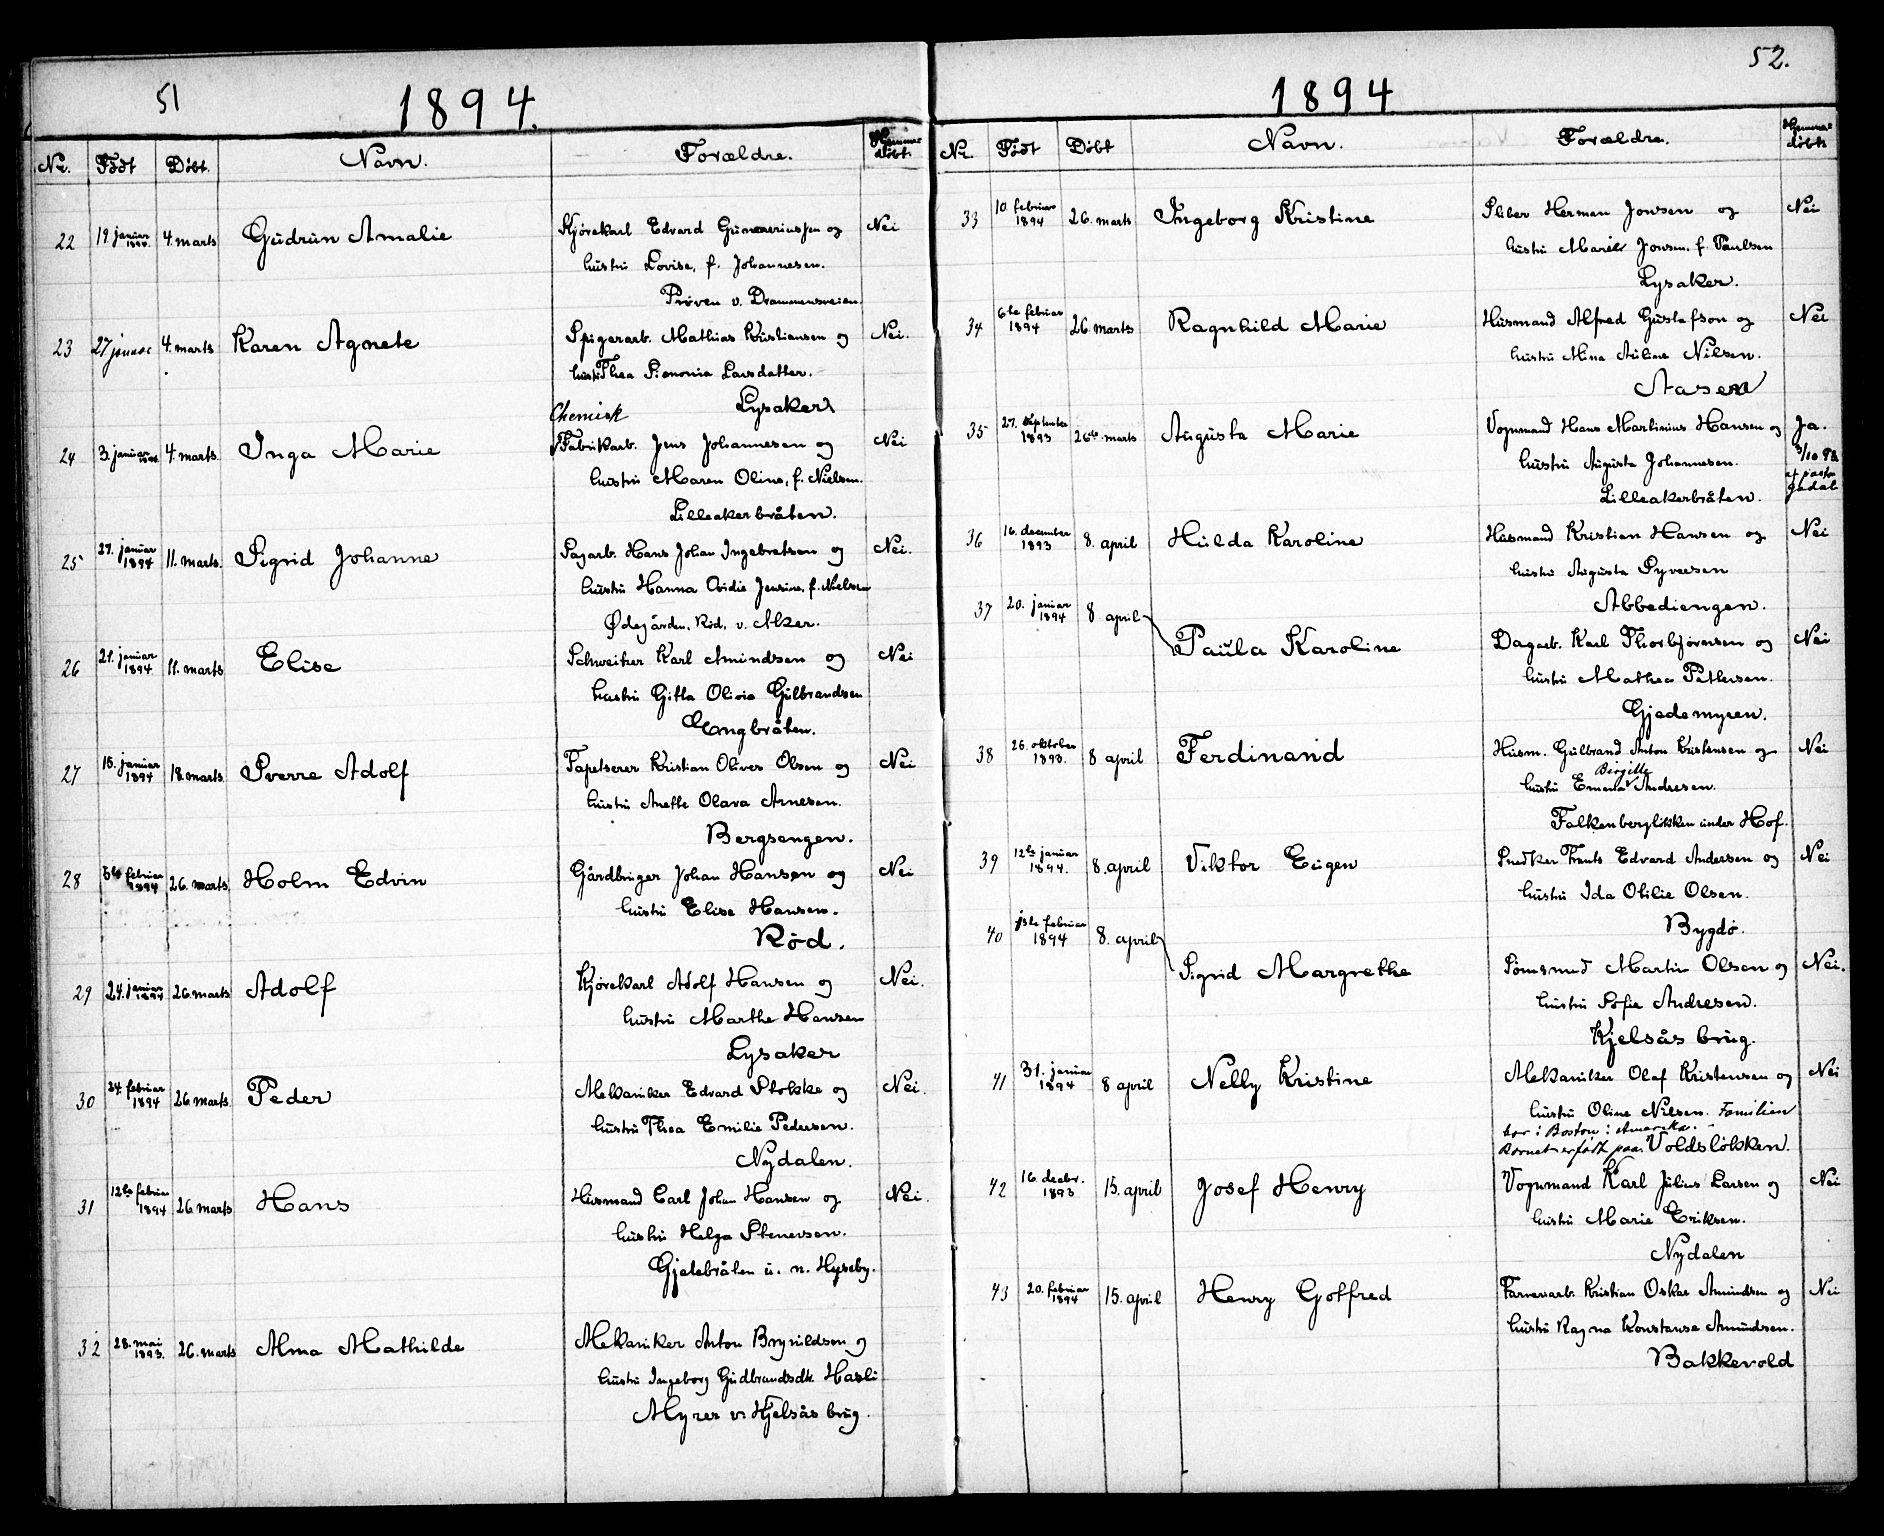 51
1894.
Nr. Født Døbt. Navn. Forældre. Hjemmedøbt.
22 19. januar 1894. 4. marts Gudrun Amalie Kjørekarl Edvard Gunneriussen og Nei
hustru Lovise, f. Johannesen.
Prøven v. Drammensveien.
23 27 januar 4. marts Karen Agnete Spigerarb. Mathias Kristiansen og Nei.
hustru Thea Simonia Larsdatter.
Lysaker
Chemisk
24 3. januar 1894 4. marts. Inga Marie Fabrikarb. Jens Johannesen og Nei
hustru Maren Oline, f. Nielsen.
Lilleakerbråten.
25 27. januar 1894 11. marts. Sigrid Johanne Sagarb. Hans Johan Ingebretsen og Nei.
hustru Hanna Ovidie Jensine, f. Nielsen
Ødegården, Rød, v. Aker.
26 21. januar 1894 11. marts Elise Schweitzer Karl Amundsen og Nei
hustru Gitta Olivia Gulbrandsen
Engbråten.
27 15. januar 1894 18. marts Sverre Adolf Tapetserer Kristian Oliver Olsen og Nei
hustru Anette Olava Arnesen.
Bergsengen.
28 5te februar 1894 26. marts Holm Edvin Gårdbruger Johan Hansen og Nei
hustru Elise Hansen.
Rød.
29 24. januar 1894 26. marts Adolf Kjørekarl Adolf Hansen og Nei.
hustru Marthe Hansen
Lysaker
30 24. februar 1894 26 marts. Peder Mekaniker Edvard Stokke og Nei.
hustru Thea Emilie Pedersen.
Nydalen.
31 12te februar 1894 26 marts Hans Husmand Carl Johan Hansen og Nei.
hustru Helga Stenersen.
Gjetebråten u. n. Hyseby.
32 28. mai 1893. 26. marts Alma Mathilde Mekaniker Anton Brynildsen og
hustru Ingeborg Gudbrandsdtr. Hasli
Myrer v. Kjelsås brug.
52.
1894
Nr. Født Døbt Navn. Forældre. Hjemmedøbt
33 10. februar 1894 26. marts Ingeborg Kristine Sliber Herman Jonsen og Nei
hustru Marie Jonsen, f. Paulsen
Lysaker.
34 6te februar 1894 26. marts Ragnhild Marie Husmand Alfred Gustafson og Nei
hustru Mina Auline Nilsen.
Aasen
35 27. september 1893 26de marts Augusta Marie Vognmand Hans Martinius Hansen og Ja.
hustru Augusta Johannesen. 3/10 93
af pastor
Lilleakerbråten. Gadal
36 16. december 1893 8. april Hulda Karoline Husmand Kristian Hansen og Nei
hustru Augusta Syversen
Abbediengen.
37 20. januar 1894 8 april Paula Karoline Dagarb. Karl Thorbjørnsen og Nei
hustru Mathea Pettersen.
Gjedemyren.
38 26. oktober 1893. 8 april Ferdinand Husm. Gulbrand Anton Kristensen og Nei
Birgitte
hustru Emma Andresen.
Falkenbergløkken under Hof.
39 12te januar 1894. 8. april Viktor Eugen Snedker Frants Edvard Andersen og Nei
hustru Ida Otilie Olsen.
Bygdø.
40 1ste februar 1894 8. april Sigrid Margrethe Sømsmed Martin Olsen og Nei.
hustru Sofie Andresen.
Kjelsås brug.
41 31. januar 1894 8 april Nelly Kristine Mekaniker Olaf Kristensen og Nei
hustru Oline Nilsen. Familien
bor i Boston i Amerika.
Barnet er født paa Voldsløkken.
42 16. decbr. 1893 15. april Josef Henry Vognmand Karl Julius Larsen og Nei
hustru Marie Eriksen.
Nydalen
43 20. februar 1894 15. april Henry Gotfred Farveriarb. Kristian Oskar Amundsen og Nei
hustru Ragna Konstanse Amundsen.
Bakkevold